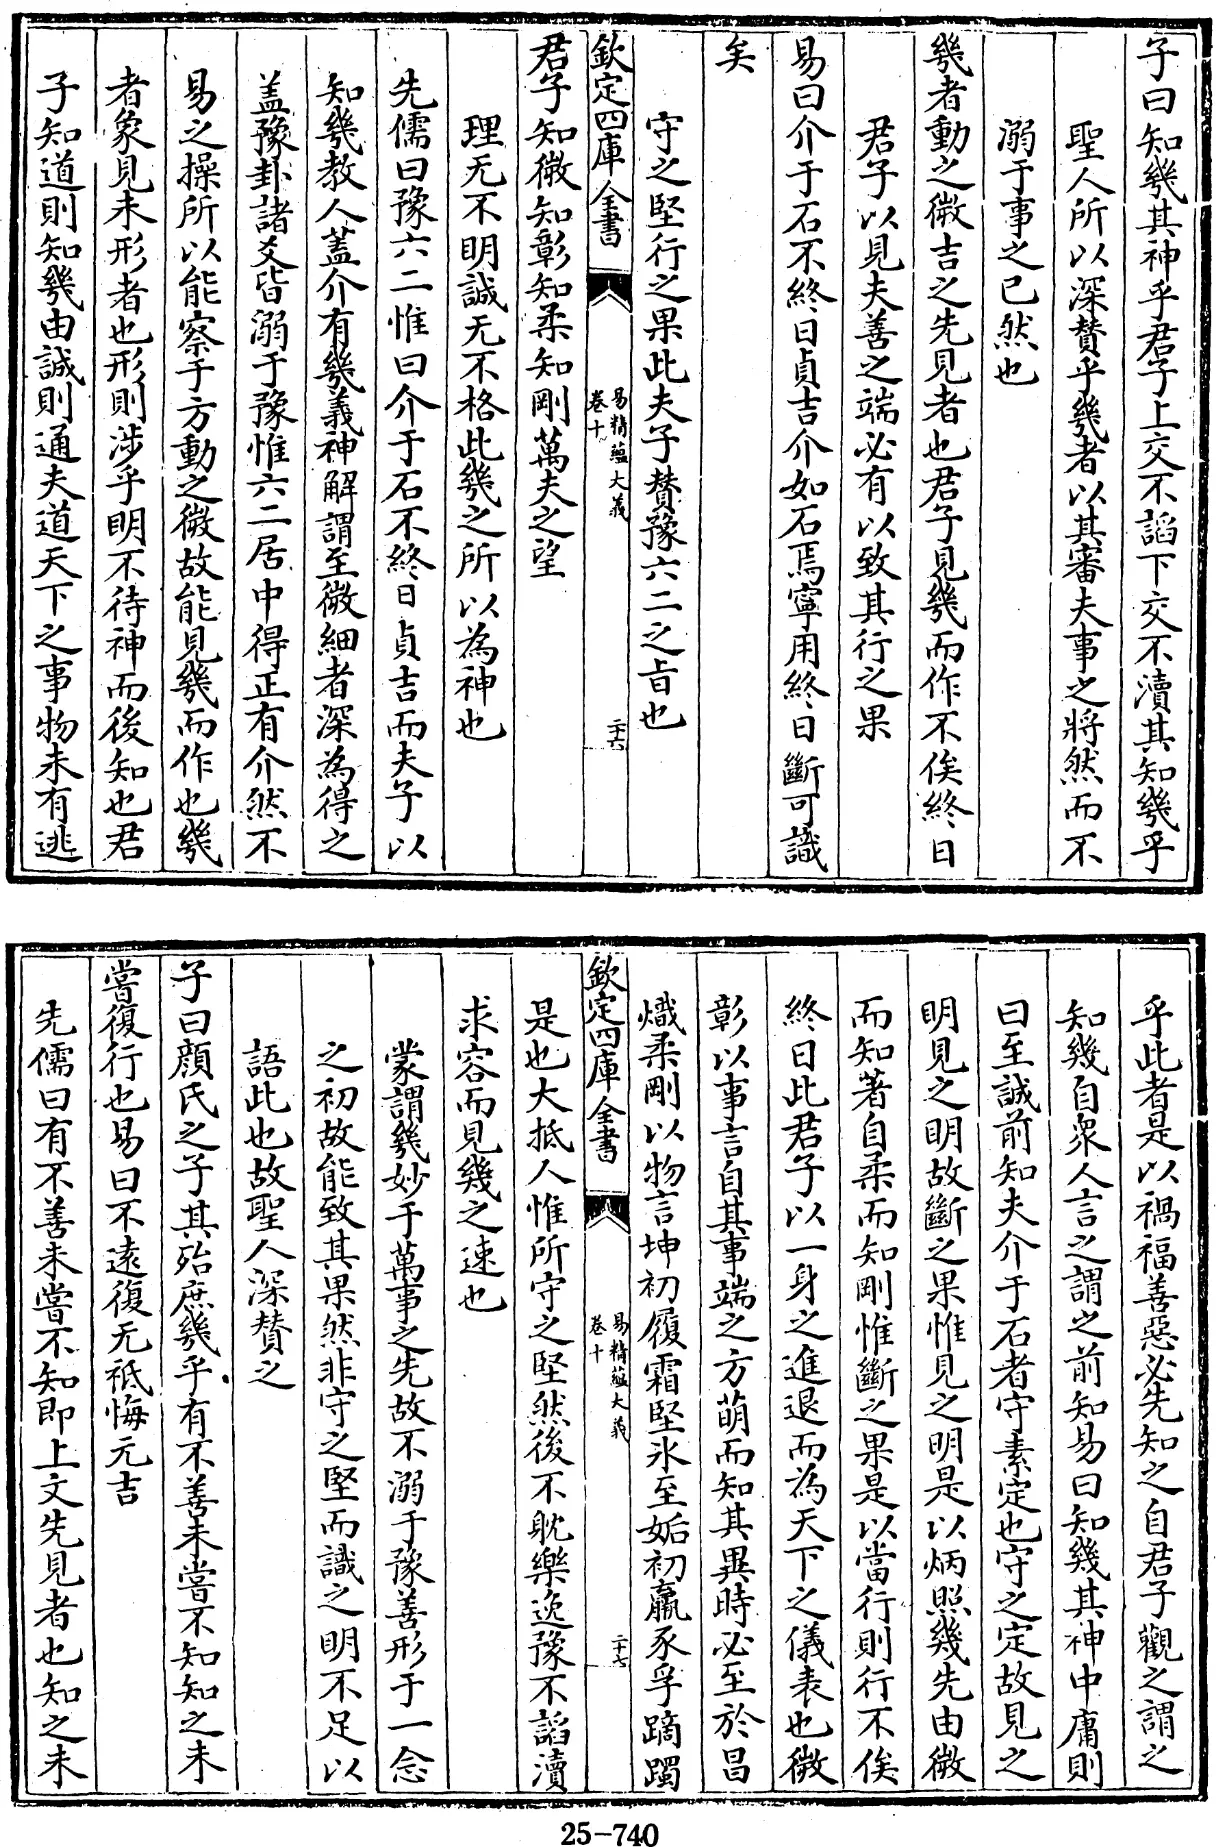 子曰知幾其神乎君子上交不諂下交不瀆其知幾乎
聖人所以深贊乎幾者以其審夫事之將然而不
溺于事之已然也
幾者動之微吉之先見者也君子見幾而作不俟終日
君子以見夫善之端必有以致其行之果
易曰介于石不終日貞吉介如石焉寧用終日斷可識
矣
守之堅行之果此夫子贊豫六二之旨也
欽定四庫全書
易精蘊大義
卷十
二十六
君子知微知彰知柔知剛萬夫之望
理无不明誠无不格此幾之所以為神也
先儒曰豫六二惟曰介于石不終日貞吉而夫子以
知幾教人蓋介有幾義神解謂至微細者深為得之
蓋豫卦諸爻皆溺于豫惟六二居中得正有介然不
易之操所以能察于方動之微故能見幾而作也幾
者象見未形者也形則涉乎明不待神而後知也君
子知道則知幾由誠則通夫道天下之事物未有逃
乎此者是以禍福善惡必先知之自君子觀之謂之
知幾自衆人言之謂之前知易曰知幾其神中庸則
曰至誠前知夫介于石者守素定也守之定故見之
明見之明故斷之果惟見之明是以炳照幾先由微
而知著自柔而知剛惟斷之果是以當行則行不俟
終日此君子以一身之進退而為天下之儀表也微
彰以事言自其事端之方萌而知其異時必至於昌
熾柔剛以物言坤初履霜堅氷至姤初羸豕孚蹢躅
欽定四庫全書
易精蘊大義
卷十
二十七
是也大抵人惟所守之堅然後不躭樂逸豫不諂瀆
求容而見幾之速也
蒙謂幾妙于萬事之先故不溺于豫善形于一念
之初故能致其果然非守之堅而識之明不足以
語此也故聖人深贊之
子曰顔氏之子其殆庶幾乎有不善未嘗不知知之未
嘗復行也易曰不遠復无祗悔元吉
先儒曰有不善未嘗不知即上文先見者也知之未
25-740